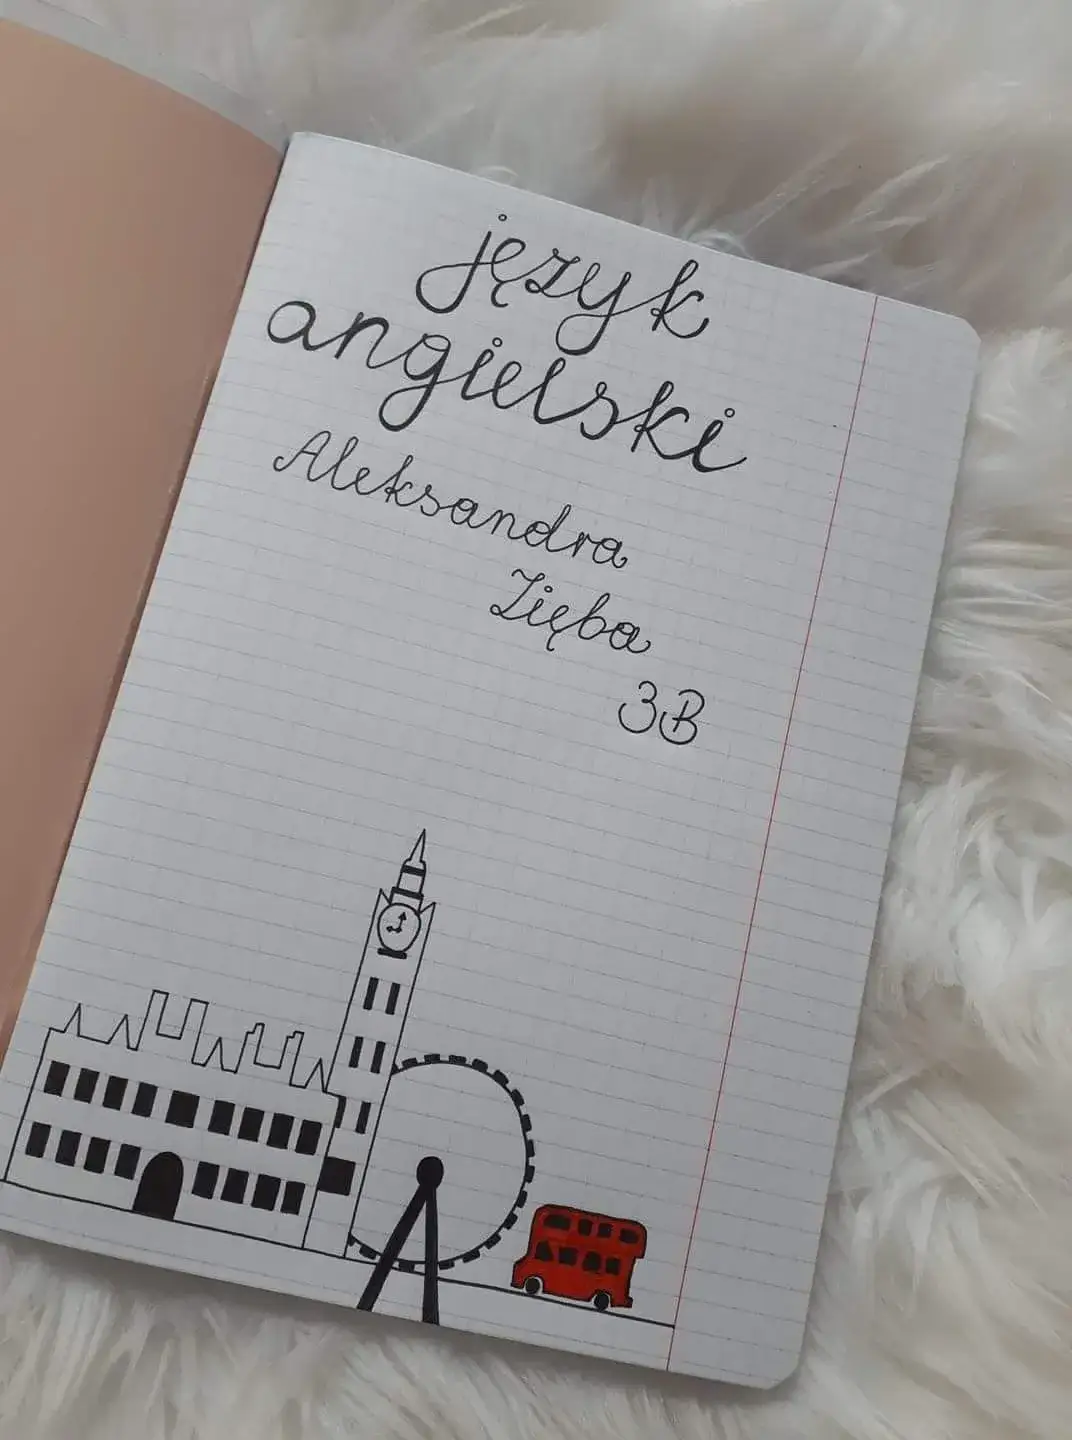 język
angielski
Aleksandra
Zięba
3B